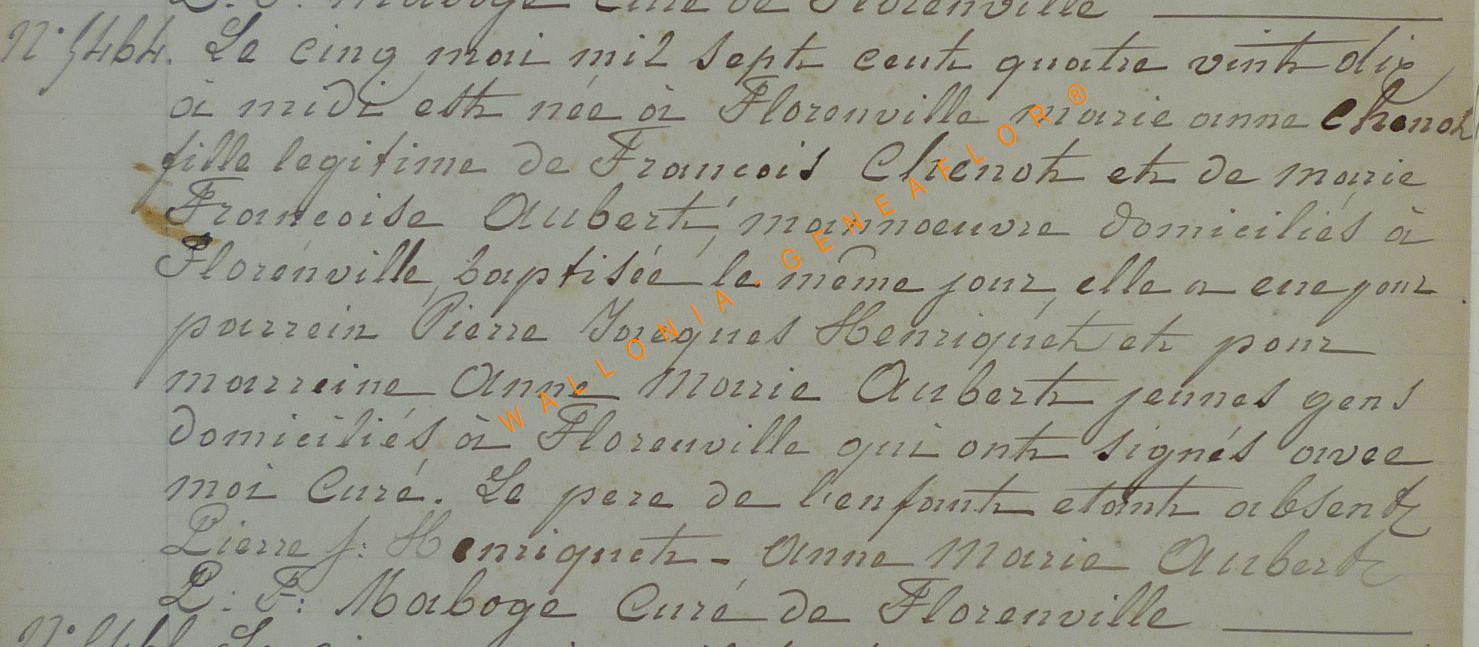 L. F. Maboge Curé de Florenville
N° 5464. Le cinq mai mil sept cent quatre vint dix,
à midi est née à Florenville marie anne Chenot
fille legitime de Francois Chenot et de marie
Francoise Aubert, mannoeuvre domiciliés à
Florenville, baptisée le même jour, elle a eue pour
parrein Pierre Jacques Henriquet et pour
marreine Anne Marie Aubert jeunes gens
domiciliés à Florenville qui ont signés avec
moi Curé. Le pere de l'enfant etant absent
Pierre J: Henriquet - Anne Marie Aubert
L: F: Maboge Curé de Florenville
WALLONIA-GENEAFLOR®